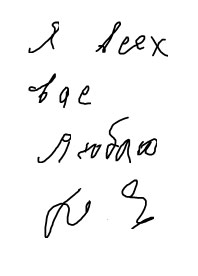 Я всех
вас
люблю